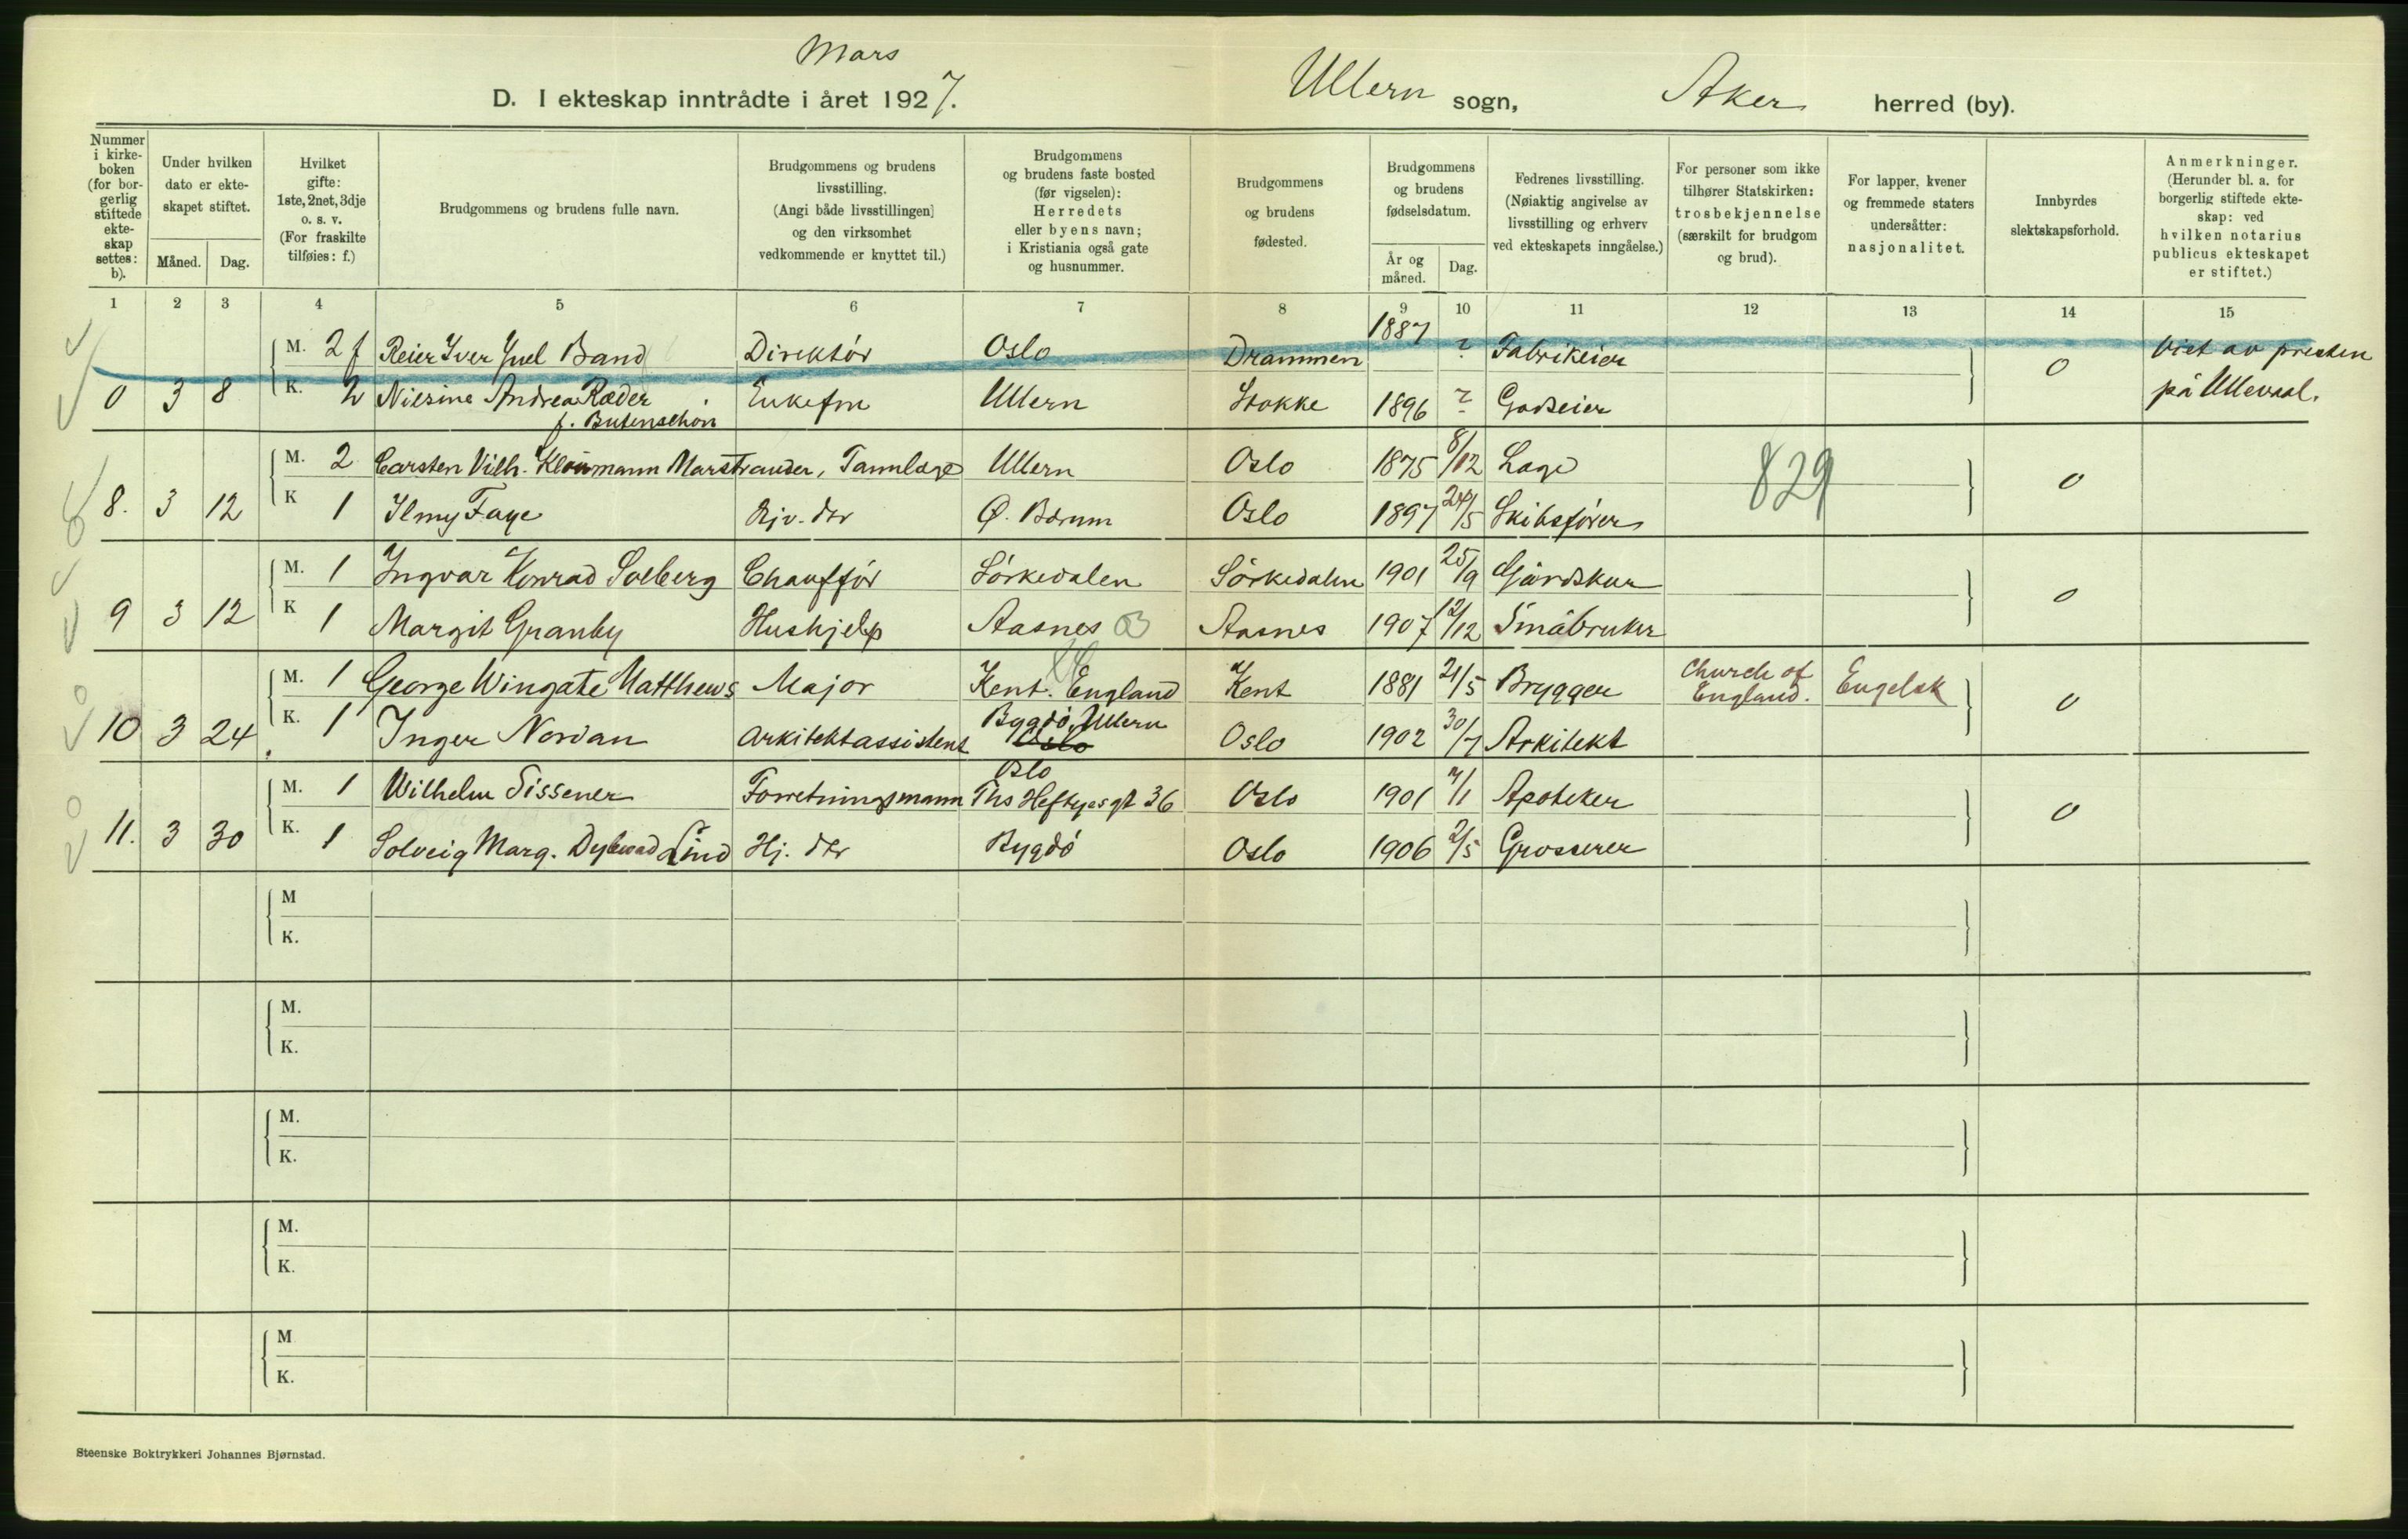 Mars
D. I ekteskap inntrådte i året 1927.
Ullern sogn, Aker herred (by).
Nummer i kirke-boken (for bor-gerlig stiftede ekte-skap settes: b).
Under hvilken dato er ekte-skapet stiftet.
Måned. Dag.
Hvilket gifte: 1ste, 2net, 3dje o. s. v. (For fraskilte tilføies: f.)
Brudgommens og brudens fulle navn.
Brudgommens og brudens livsstilling. (Angi både livsstillingen] og den virksomhet vedkommende er knyttet til.)
Brudgommens og brudens faste bosted (før vigselen): Herredets eller byens navn; i Kristiania også gate og husnummer.
Brudgommens og brudens fødested.
Brudgommens og brudens fødselsdatum.
År og måned. Dag.
Fedrenes livsstilling. (Nøiaktig angivelse av livsstilling og erhverv ved ekteskapets inngåelse.)
For personer som ikke tilhører Statskirken: trosbekjennelse (særskilt for brudgom og brud).
For lapper, kvener og fremmede staters undersåtter: nasjonalitet.
Innbyrdes slektskapsforhold.
Anmerkninger. (Herunder bl. a. for borgerlig stiftede ekte-skap: ved hvilken notarius publicus ekteskapet er stiftet.)
1 2 3 4 5 6 7 8 9 10 11 12 13 14 15
M. 2 f Reier Iver Juel Band Direktör Oslo Drammen 1887 ? Fabrikeier 0 Viet av presten
0 3 8 K. 2 Nilsine Andrea Ræder Enkefru Ullern Stokke 1896 ? Godseier på Ullevaal.
f. Butenschön
M. 2 Carsten Vilh. Klouman Marstrander, Tannlæge Ullern Oslo 1875 8/12 Læge 829 0
8. 3 12 K 1 Ilmy Faye Hjv. dtr Ø. Bærum Oslo 1897 24/5 Skibsfører
M. 1 Ingvar Konrad Solberg Chaufför Sörkedalen Sörkedalen 1901 25/9 Gårdsk​ar 0
9 3 12 K 1 Margit Granby Hushjelp Aasnes Aasnes 1907 12/12 Småbruker
M. 1 George Wingate Matthews Major Kent. England Kent 1881 21/5 Brygger Church of England. Engelsk 0
10 3 24 K. 1 Inger Norvan Arkitektassistent Bygdö, Ullern Oslo Oslo 1902 30/7 Arkitekt
M. 1 Wilhelm Sissener Forretningsmann Oslo Ths Heftyesgt 36 Oslo 1901 7/1 Apoteker 0
11. 3 30 K. 1 Solveig Marg. Dybwad Lind Hj. dtr Bygdö Oslo 1906 2/5 Grosserer
M
K.
M.
K.
M.
K.
M.
K.
M
K.
Steenske Boktrykkeri Johannes Bjørnstad.